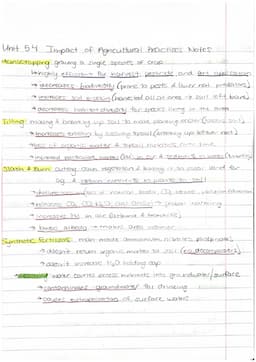 Unit 5.4 Impact of Agricultural Practices Notes
Monocropping: growing a single species of crop
↳ highly efficient for harvest, pesticide and fert. application
→ decreases biodiversity (prone to pests & fewer nat. predators)
→ increases soil erosion (harvested all at once → soil left bare)
→ decreases habitat diversity for species living in the area
Tilling: mixing & breaking up soil to make planting easier (loosens soil)
→ increases erosion by loosening topsoil (breaking up leftover root)
→ loss of organic matter & topsoil nutrients over time
→ increased particulate matter
Slash & Burn: cutting down vegetation & burning it to clear land for
ag. & return nutrients in plants to soil
→ deforestation
→ releases CO2, N2O
→ increases
→ lowers albedo → makes area warmer
Synthetic Fertilizers: man made ammonium, nitrates, phosphate
→ doesn't return organic matter to soil (no decomposers)
→ doesn't increase H2O holding cap
→ water carries excess nutrients into groundwater/surface
→ contaminates groundwater for drinking
→ causes eutrophication of surface waters